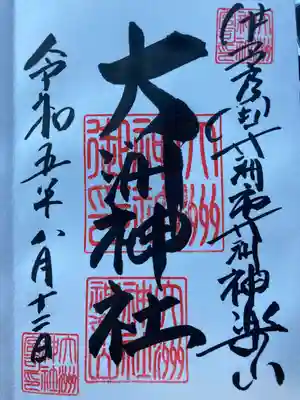 伊予 大洲市大洲神楽山
大洲神社
令和五年八月十二日